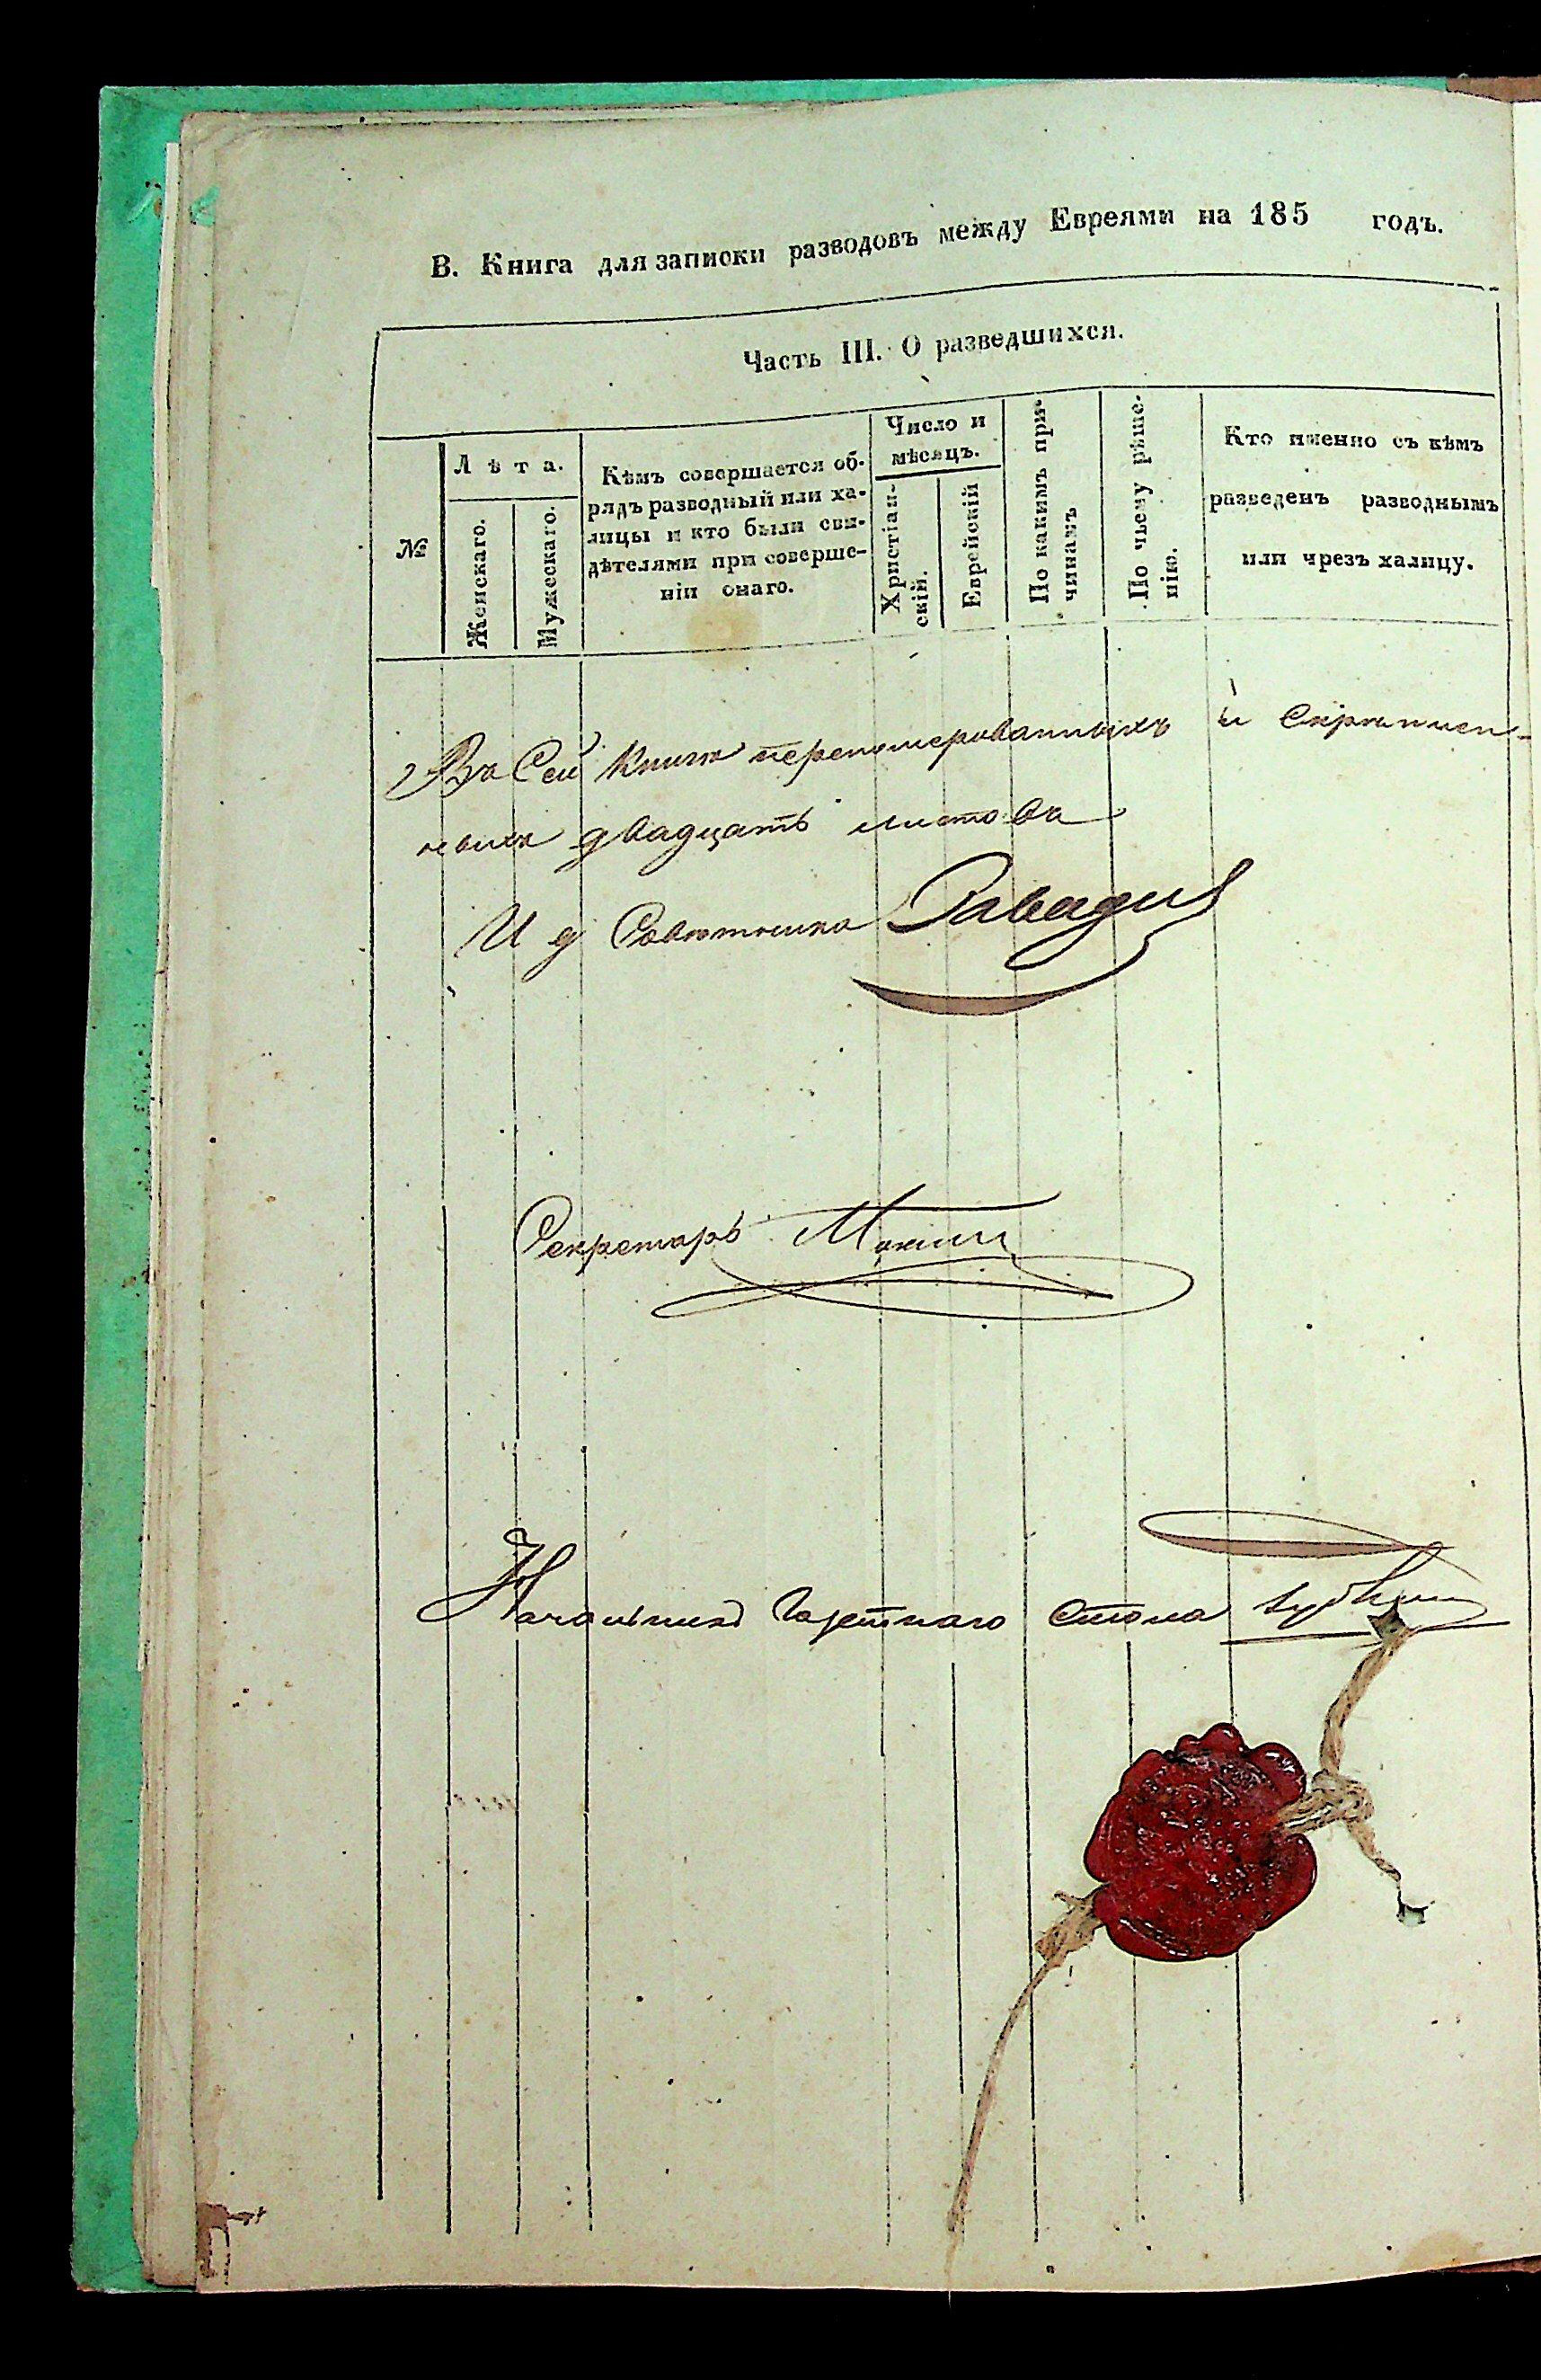 В. Книга для записки разводовъ между Евреями на 185 годъ.
Часть III. О разведшихся.
№
Лѣта.
Женскаго.
Мужескаго.
Кѣмъ совершается об-
рядъ разводный или ха-
лицы и кто были сви-
дѣтелями при соверше-
ніи онаго.
Число и
мѣсяцъ.
Христіан-
скій.
Еврейскій
По какимъ при-
чинамъ
По чьему рѣше-
нію.
Кто именно съ кѣмъ
разведенъ разводнымъ
или чрезъ халицу.
Въ Сей Книгѣ перенумерованныхъ и Скрѣплен-
ныхъ двадцать листовъ
И д Совѣтника
Секретарь
Начальникъ Газетнаго Стола